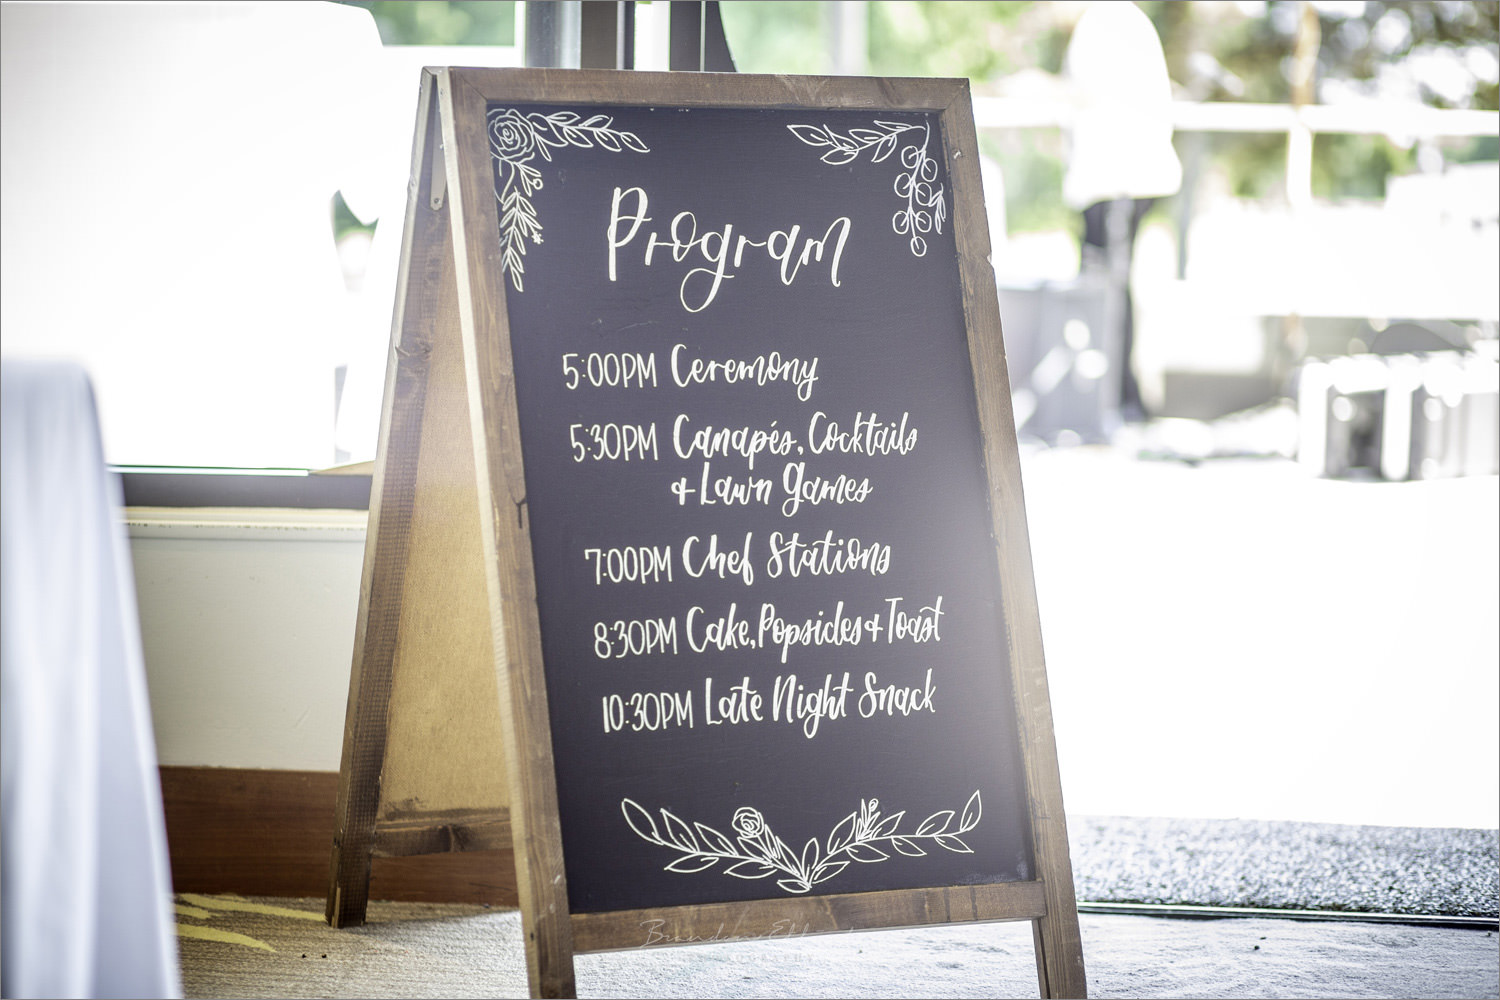 Program
5:00PM Ceremony
5:30PM Canapés, Cocktails
+ Lawn Games
7:00PM Chef Stations
8:30PM Cake, Popsicles + Toast
10:30PM Late Night Snack